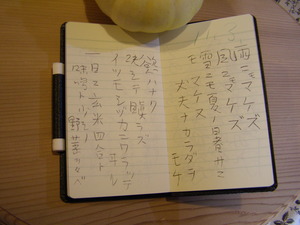 11.3.
雨ニモマケズ
風ニモマケズ
雪ニモ夏ノ暑サニ
モマケヌ
丈夫ナカラダヲ
モチ
慾ハナク
決シテ瞋ラズ
イツモシヅカニワラッテ
ヰル
一日ニ玄米四合ト
味噌ト少シノ野菜ヲタベ